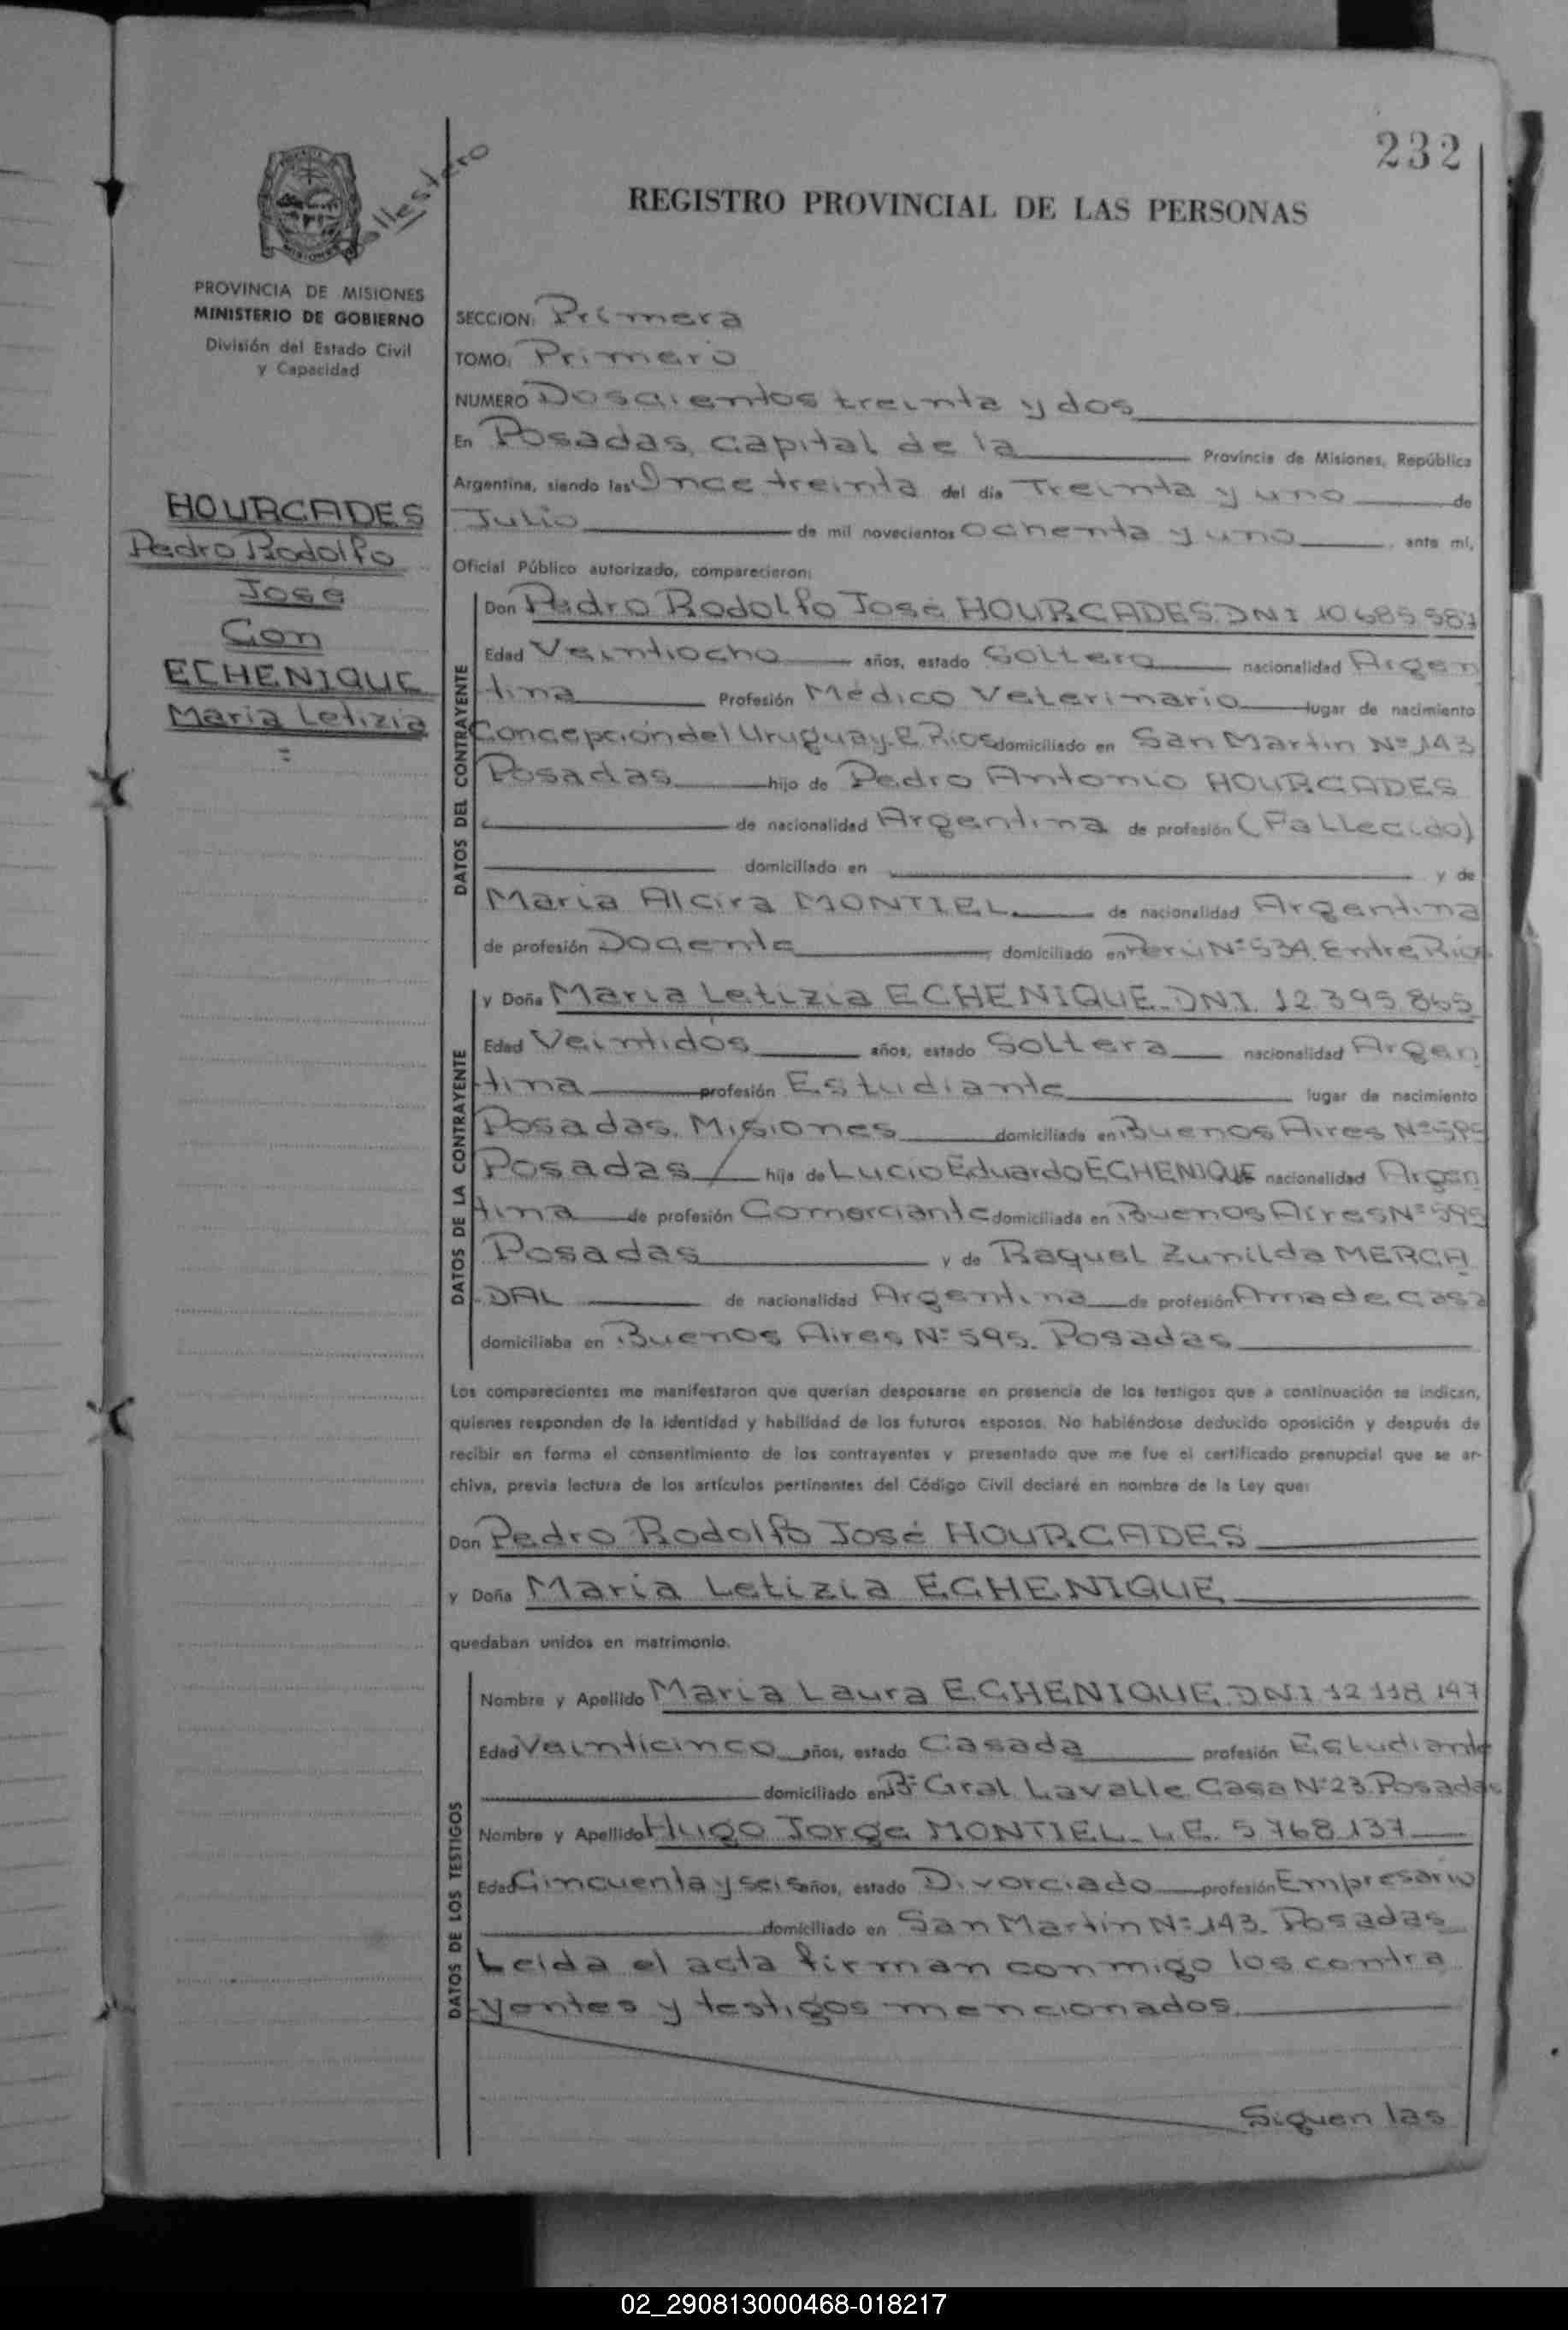 232
REGISTRO PROVINCIAL DE LAS PERSONAS
PROVINCIA DE MISIONES
MINISTERIO DE GOBIERNO
División del Estado Civil
y Capacidad
HOURCADES
Pedro Rodolfo
José
Con
ECHENIQUE
María Letizia
=
SECCION: Primera
TOMO: Primero
NUMERO Doscientos treinta y dos
En Posadas, capital de la Provincia de Misiones, República
Argentina, siendo las Once treinta del día Treinta y uno de
Julio de mil novecientos ochenta y uno, ante mí,
Oficial Público autorizado, comparecieron:
DATOS DEL CONTRAYENTE
Don Pedro Rodolfo José HOURCADES. DNI 10 685 587
Edad Veintiocho años, estado Soltero nacionalidad Argen
tina Profesión Médico Veterinario lugar de nacimiento
Concepción del Uruguay. E. Rios domiciliado en San Martin Nº 143
Posadas hijo de Pedro Antonio HOURCADES
de nacionalidad Argentina de profesión (Fallecido)
domiciliado en y de
María Alcira MONTIEL de nacionalidad Argentina
de profesión Docente domiciliado en Perú Nº 534. Entre Rios
DATOS DE LA CONTRAYENTE
y Doña María Letizia ECHENIQUE. DNI. 12.395.865
Edad Veintidós años, estado Soltera nacionalidad Argen
tina profesión Estudiante lugar de nacimiento
Posadas. Misiones domiciliada en Buenos Aires Nº 595
Posadas hija de Lucio Eduardo ECHENIQUE de nacionalidad Argen
tina de profesión Comerciante domiciliada en Buenos Aires Nº 595
Posadas y de Raquel Zunilda MERCA
DAL de nacionalidad Argentina de profesión Ama de casa
domiciliaba en Buenos Aires Nº 595. Posadas
Los comparecientes me manifestaron que querían desposarse en presencia de los testigos que a continuación se indican,
quienes responden de la identidad y habilidad de los futuros esposos. No habiéndose deducido oposición y después de
recibir en forma el consentimiento de los contrayentes y presentado que me fue el certificado prenupcial que se ar-
chiva, previa lectura de los artículos pertinentes del Código Civil declaré en nombre de la Ley que:
Don Pedro Rodolfo José HOURCADES
y Doña María Letizia ECHENIQUE
quedaban unidos en matrimonio.
DATOS DE LOS TESTIGOS
Nombre y Apellido María Laura ECHENIQUE. DNI 12 118 147
Edad Veinticinco años, estado Casada profesión Estudiante
domiciliado en Bº Gral Lavalle Casa Nº 23. Posadas
Nombre y Apellido Hugo Jorge MONTIEL. L.E. 5 768 137
Edad Cincuenta y seis años, estado Divorciado profesión Empresario
domiciliado en San Martin Nº 143. Posadas
Leida el acta firman conmigo los contra
yentes y testigos mencionados.
Siguen las
02_290813000468-018217